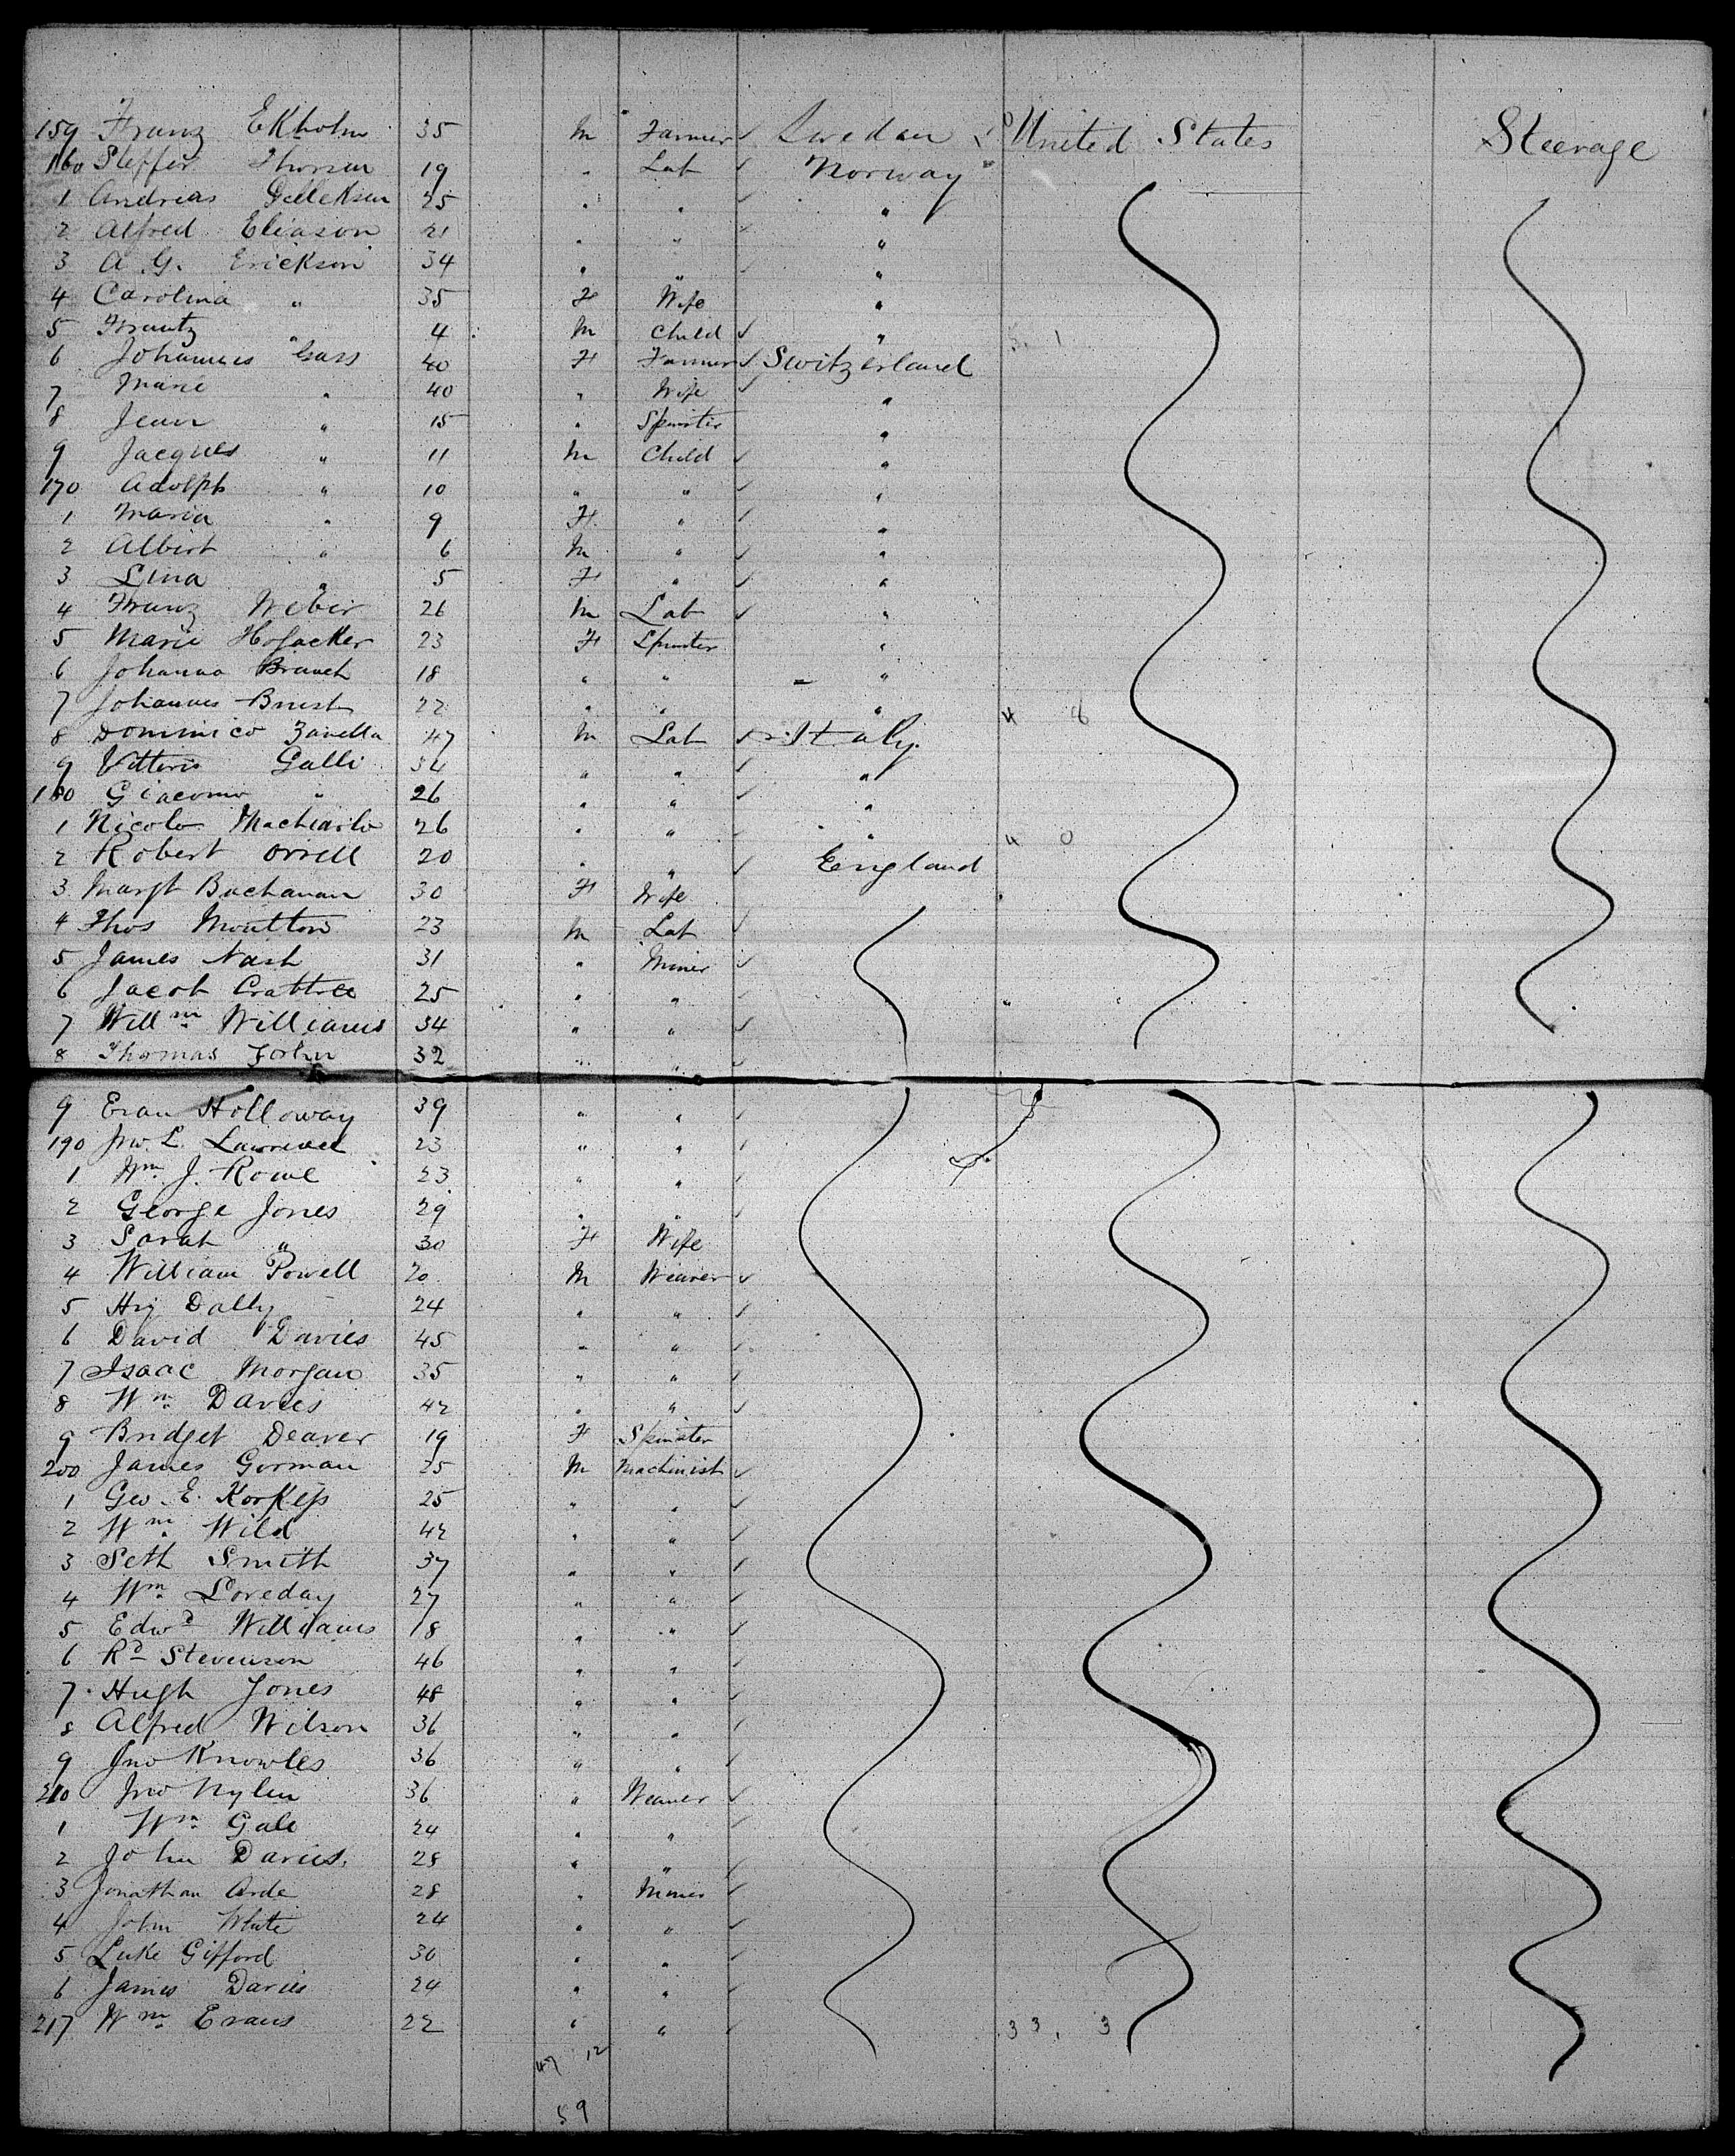 159 Franz Ekholm 35 M Farmer ✓ Sweden United States Steerage
160 Steffen Thorsen 19 " Lab ✓ Norway "
1 Andreas 25 " " ✓ "
2 Alfred Eliason 21 " " "
3 A. G. Erickson 34 " " "
4 Carolina " 35 F Wife "
5 Frantz " 4 M Child ✓ "
6 Johannes Gass 40 F Farmer ✓ Switzerland
7 Marie " 40 " Wife ✓ "
8 Jean " 15 " Spinster "
9 Jacques " 11 M Child ✓ "
170 Adolph " 10 " " ✓ "
1 Maria " 9 F " ✓ "
2 Albert " 6 M " ✓ "
3 Lina " 5 F " ✓ "
4 Franz Weber 26 M Lab ✓ "
5 Marie Hofacker 23 F Spinster "
6 Johanna Branch 18 " " "
7 Johannes 22 " " "
8 Dominico Zanella 47 M Lab ✓ Italy
9 Vittorio Galli 34 " " ✓ "
180 Giacomo " 26 " " ✓ "
1 Nicolo 26 " " "
2 Robert Orrell 20 " " ✓ England
3 Margt Buchanan 30 F Wife
4 Thos Moulton 23 M Lab ✓
5 James Nash 31 " Miner ✓
6 Jacob Crabtree 25 " "
7 Willm Williams 34 " " ✓
8 Thomas John 32 " " ✓
9 Evan Holloway 39 " " ✓
190 Jno. L. Lawrence 23 " " ✓
1 Wm J. Rowe 23 " " ✓
2 George Jones 29 " " ✓
3 Sarah " 30 F Wife
4 William Powell 20 M Weaver ✓
5 Hy Dally 24 " " ✓
6 David Davies 45 " " ✓
7 Isaac Morgan 35 " " ✓
8 Wm Davies 42 " " ✓
9 Bridget Deaver 19 F Spinster
200 James Gorman 25 M Machinist ✓
1 Geo. E. 25 " " ✓
2 Wm Wild 42 " " ✓
3 Seth Smith 37 " " ✓
4 Wm Loveday 27 " " ✓
5 Edwd Williams 18 " " ✓
6 Rd Stevenson 46 " " ✓
7 Hugh Jones 48 " " ✓
8 Alfred Wilson 36 " " ✓
9 Jno Knowles 36 " " ✓
210 Jno Nylen 36 " Weaver ✓
1 Wm Gale 24 " " ✓
2 John Davies 28 " " ✓
3 Jonathan Arde 28 " Miner ✓
4 John White 24 " " ✓
5 Luke Gifford 30 " " ✓
6 James Davies 24 " " ✓
217 Wm Evans 22 " " ✓ 33. 3
47 12
59